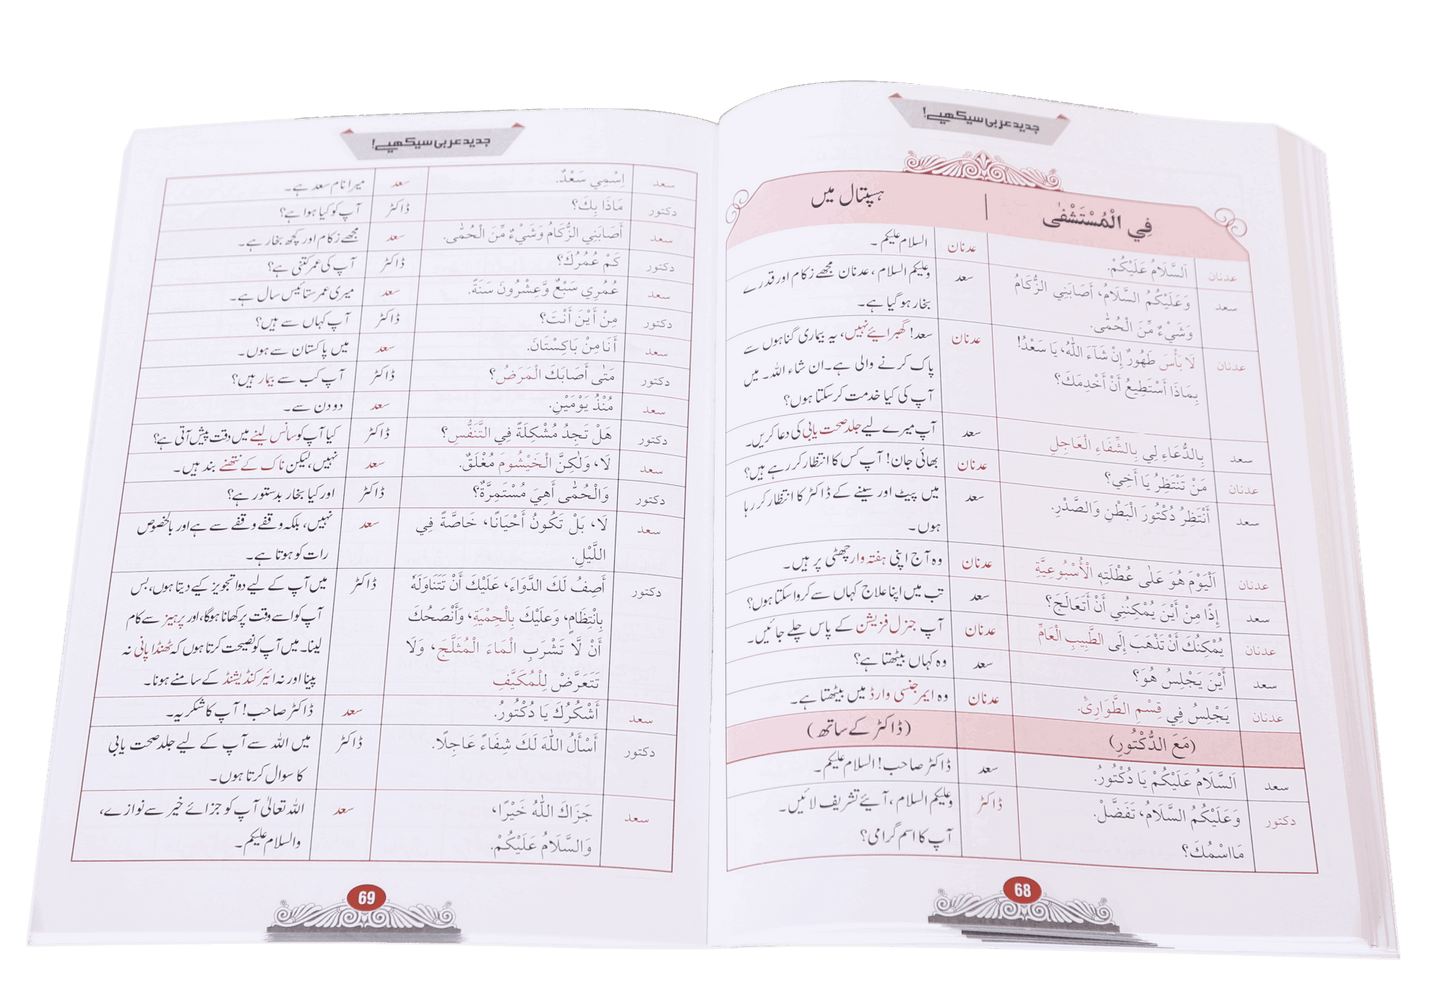 جدید عربی سیکھیے!
فِي الْمُسْتَشْفٰى | ہسپتال میں
عدنان اَلسَّلَامُ عَلَيْكُمْ. عدنان السلام علیکم۔
سعد وَعَلَيْكُمُ السَّلَامُ، أَصَابَنِي الزُّكَامُ سعد وعلیکم السلام، عدنان مجھے زکام اور قدرے
وَشَيْءٌ مِّنَ الْحُمّٰى. بخار ہو گیا ہے۔
عدنان لَا بَأْسَ طَهُورٌ إِنْ شَآءَ اللهُ، يَا سَعْدُ! عدنان سعد! گھبرائیے نہیں، یہ بیماری گناہوں سے
بِمَاذَا أَسْتَطِيعُ أَنْ أَخْدِمَكَ؟ پاک کرنے والی ہے۔ ان شاء اللہ۔ میں
آپ کی کیا خدمت کر سکتا ہوں؟
سعد بِالدُّعَاءِ لِي بِالشِّفَاءِ الْعَاجِلِ سعد آپ میرے لیے جلد صحت یابی کی دعا کریں۔
عدنان مَنْ تَنْتَظِرُ يَا أَخِي؟ عدنان بھائی جان! آپ کس کا انتظار کر رہے ہیں؟
سعد أَنْتَظِرُ دُكْتُورَ الْبَطْنِ وَالصَّدْرِ. سعد میں پیٹ اور سینے کے ڈاکٹر کا انتظار کر رہا
ہوں۔
عدنان اَلْيَوْمَ هُوَ عَلٰى عُطْلَتِهِ الْأُسْبُوعِيَّةِ عدنان وہ آج اپنی ہفتہ وار چھٹی پر ہیں۔
سعد إِذًا مِنْ أَيْنَ يُمْكِنُنِي أَنْ أَتَعَالَجَ؟ سعد تب میں اپنا علاج کہاں سے کروا سکتا ہوں؟
عدنان يُمْكِنُكَ أَنْ تَذْهَبَ إِلَى الطَّبِيبِ الْعَامِّ عدنان آپ جنرل فزیشن کے پاس چلے جائیں۔
سعد أَيْنَ يَجْلِسُ هُوَ؟ سعد وہ کہاں بیٹھتا ہے؟
عدنان يَجْلِسُ فِي قِسْمِ الطَّوَارِئِ. عدنان وہ ایمرجنسی وارڈ میں بیٹھتا ہے۔
(مَعَ الدُّكْتُورِ) (ڈاکٹر کے ساتھ)
سعد اَلسَّلَامُ عَلَيْكُمْ يَا دُكْتُورُ. سعد ڈاکٹر صاحب! السلام علیکم۔
دكتور وَعَلَيْكُمُ السَّلَامُ، تَفَضَّلْ. ڈاکٹر وعلیکم السلام، آئیے تشریف لائیں۔
مَااسْمُكَ؟ آپ کا اسم گرامی؟
68
جدید عربی سیکھیے!
سعد اِسْمِي سَعْدٌ. سعد میرا نام سعد ہے۔
دكتور مَاذَا بِكَ؟ ڈاکٹر آپ کو کیا ہوا ہے؟
سعد أَصَابَنِي الزُّكَامُ وَشَيْءٌ مِّنَ الْحُمّٰى. سعد مجھے زکام اور کچھ بخار ہے۔
دكتور كَمْ عُمُرُكَ؟ ڈاکٹر آپ کی عمر کتنی ہے؟
سعد عُمُرِي سَبْعٌ وَّعِشْرُونَ سَنَةً. سعد میری عمر ستائیس سال ہے۔
دكتور مِنْ أَيْنَ أَنْتَ؟ ڈاکٹر آپ کہاں سے ہیں؟
سعد أَنَا مِنْ بَاكِسْتَانَ. سعد میں پاکستان سے ہوں۔
دكتور مَتٰى أَصَابَكَ الْمَرَضُ؟ ڈاکٹر آپ کب سے بیمار ہیں؟
سعد مُنْذُ يَوْمَيْنِ. سعد دو دن سے۔
دكتور هَلْ تَجِدُ مُشْكِلَةً فِي التَّنَفُّسِ؟ ڈاکٹر کیا آپ کو سانس لینے میں دقت پیش آتی ہے؟
سعد لَا، وَلٰكِنَّ الْخَيْشُومَ مُغْلَقٌ. سعد نہیں، لیکن ناک کے نتھنے بند ہیں۔
دكتور وَالْحُمّٰى أَهِيَ مُسْتَمِرَّةٌ؟ ڈاکٹر اور کیا بخار بدستور ہے؟
سعد لَا، بَلْ تَكُونُ أَحْيَانًا، خَاصَّةً فِي سعد نہیں، بلکہ وقفے وقفے سے ہے اور بالخصوص
اللَّيْلِ. رات کو ہوتا ہے۔
دكتور أَصِفُ لَكَ الدَّوَاءَ، عَلَيْكَ أَنْ تَتَنَاوَلَهٗ ڈاکٹر میں آپ کے لیے دوا تجویز کیے دیتا ہوں، بس
بِانْتِظَامٍ، وَعَلَيْكَ بِالْحِمْيَةِ، وَأَنْصَحُكَ آپ کو اسے وقت پر کھانا ہوگا، اور پرہیز سے کام
أَنْ لَّا تَشْرَبِ الْمَاءَ الْمُثَلَّجَ، وَلَا لینا۔ میں آپ کو نصیحت کرتا ہوں کہ ٹھنڈا پانی نہ
تَتَعَرَّضْ لِلْمُكَيَّفِ پینا اور نہ ائیر کنڈیشنڈ کے سامنے ہونا۔
سعد أَشْكُرُكَ يَا دُكْتُورُ. سعد ڈاکٹر صاحب! آپ کا شکریہ۔
دكتور أَسْأَلُ اللهَ لَكَ شِفَاءً عَاجِلًا. ڈاکٹر میں اللہ سے آپ کے لیے جلد صحت یابی
کا سوال کرتا ہوں۔
سعد جَزَاكَ اللهُ خَيْرًا، سعد اللہ تعالیٰ آپ کو جزائے خیر سے نوازے،
وَالسَّلَامُ عَلَيْكُمْ. والسلام علیکم۔
69